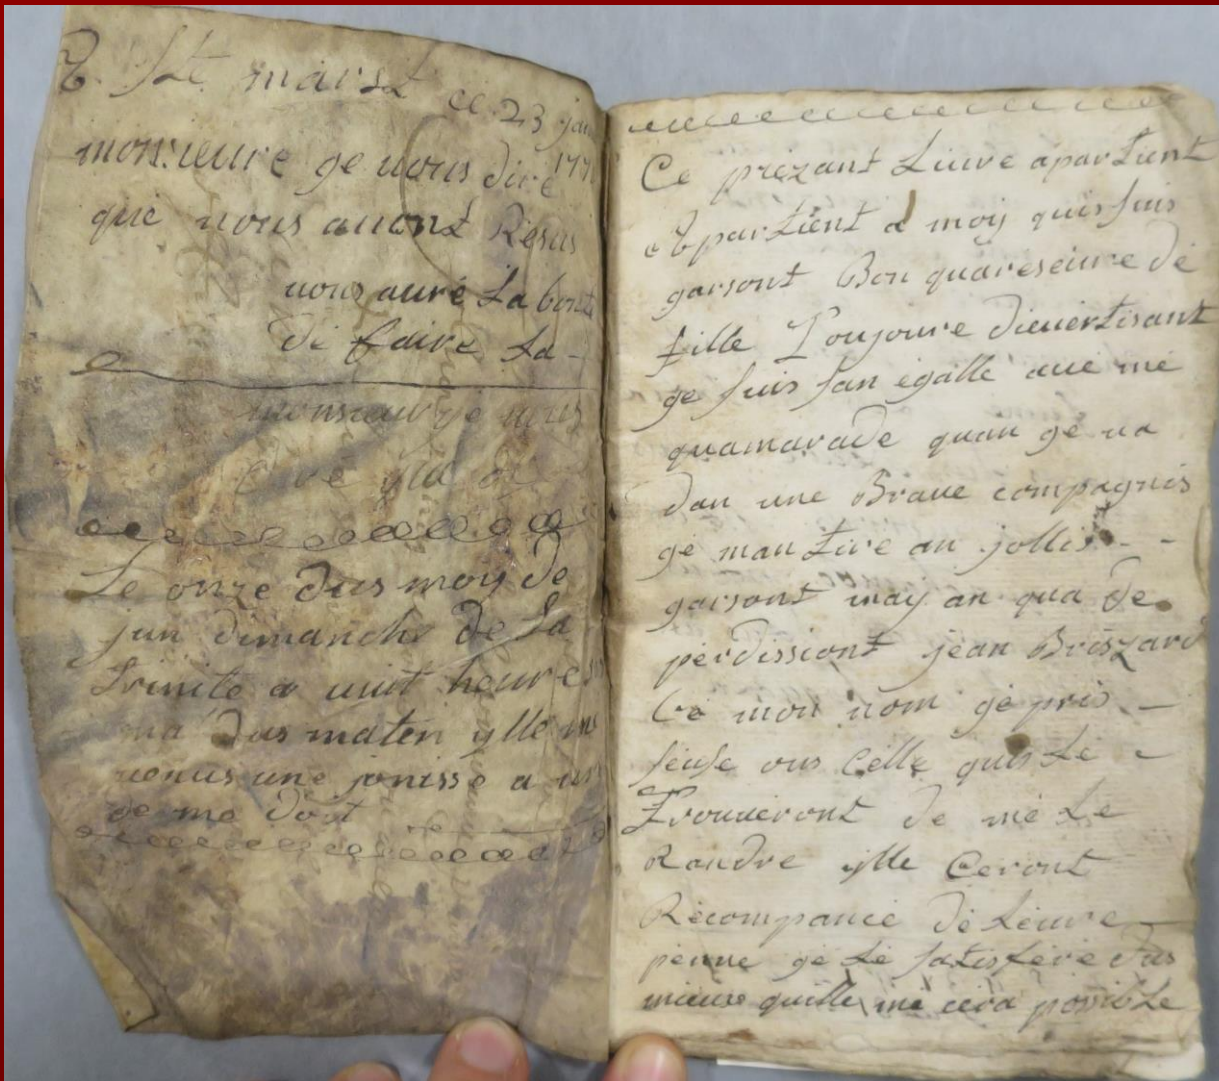 St marst ce 23
monsieure ge vous dire 177
que nous avont Resus
vous auré la bont
de faire La
monsieur je vous
Le onze dus moy de
jun dimanche de La
trinite a uuit heure
dus maten ylle
venus une jenisse a
de ma
Ce prezant Liuvre apartient
Apartient a moy quis suis
garsont Bon quareseure de
fille Toujoure dieuertisant
ge suis san egalle avé mé
quamarade quan gé va
dan une Brave compagnis
gé man tire an jollis - -
garsont may an qua de
perdissiont jean Briszard
Cé mon nom gé pris -
seuse ous Celle quis Lé -
Trouveront de mé Le
Randre ylle Ceront
Récompancé dé Leure
penne gé Lé satisferé dus
mieuse quille me cera possible